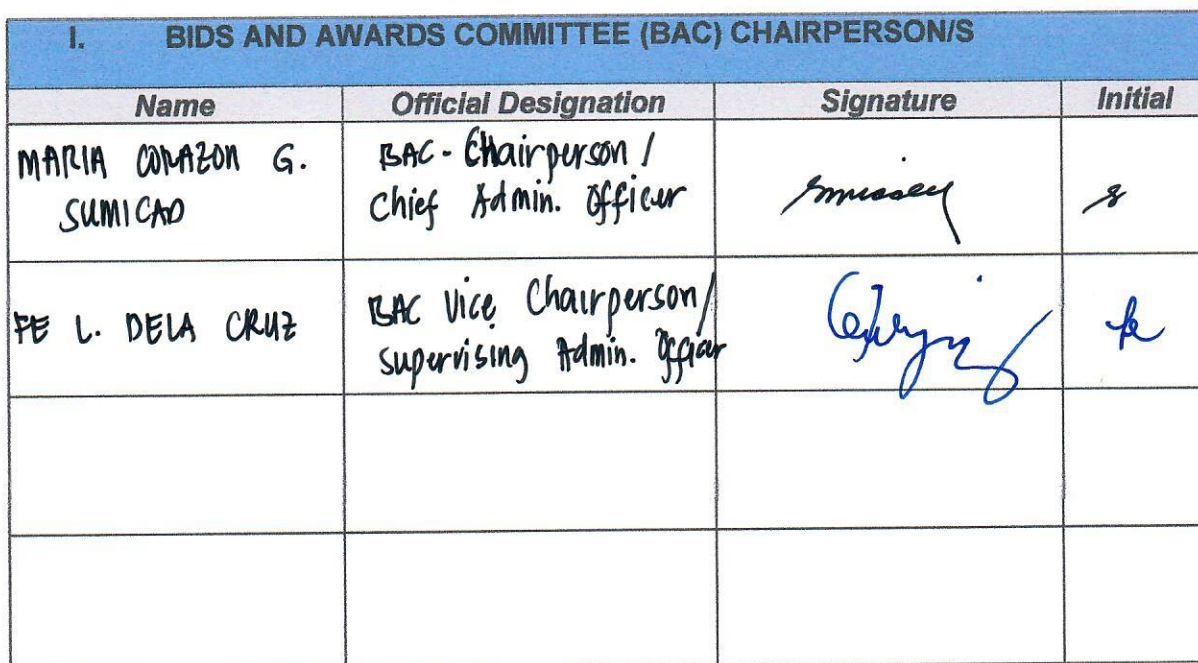 I. BIDS AND AWARDS COMMITTEE (BAC) CHAIRPERSON/S
Name Official Designation Signature Initial
MARIA CORAZON G.
SUMICAD
BAC - Chairperson /
Chief Admin. Officer
FE L. DELA CRUZ
BAC Vice Chairperson/
Supervising Admin. Officer